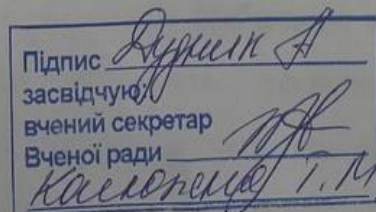 Підпис Дудник А
засвідчую:
вчений секретар
Вченої ради
Т.М